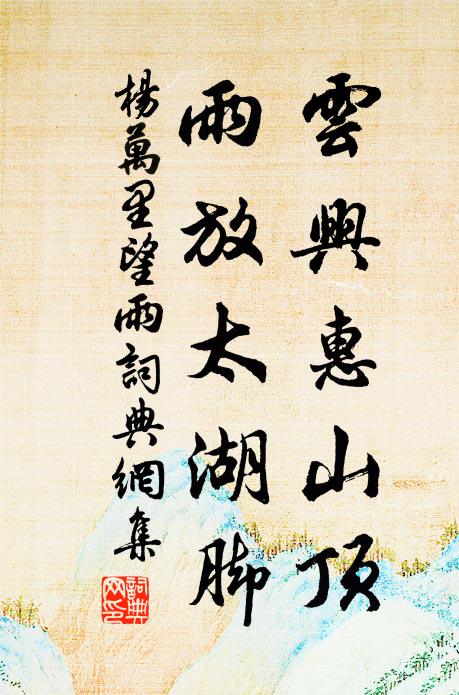 雲興惠山頂
雨放太湖脚
楊萬里望雨詞典網集
詞典網印